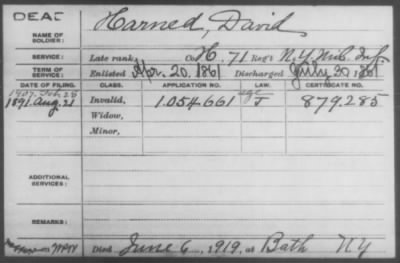 DEAD
Harned, David
NAME OF SOLDIER:
SERVICE: Late rank, Co. H. 71 Reg't N.Y. Mil. Inf.
TERM OF SERVICE: Enlisted Apr. 20. 1861 Discharged July 30, 1861
DATE OF FILING. CLASS. APPLICATION NO. LAW. CERTIFICATE NO.
1907. Feb. 25 age
1891. Aug. 21 Invalid, 1.054.661 J 879.285
Widow,
Minor,
ADDITIONAL SERVICES:
REMARKS:
Died June 6, 1919, at Bath NY